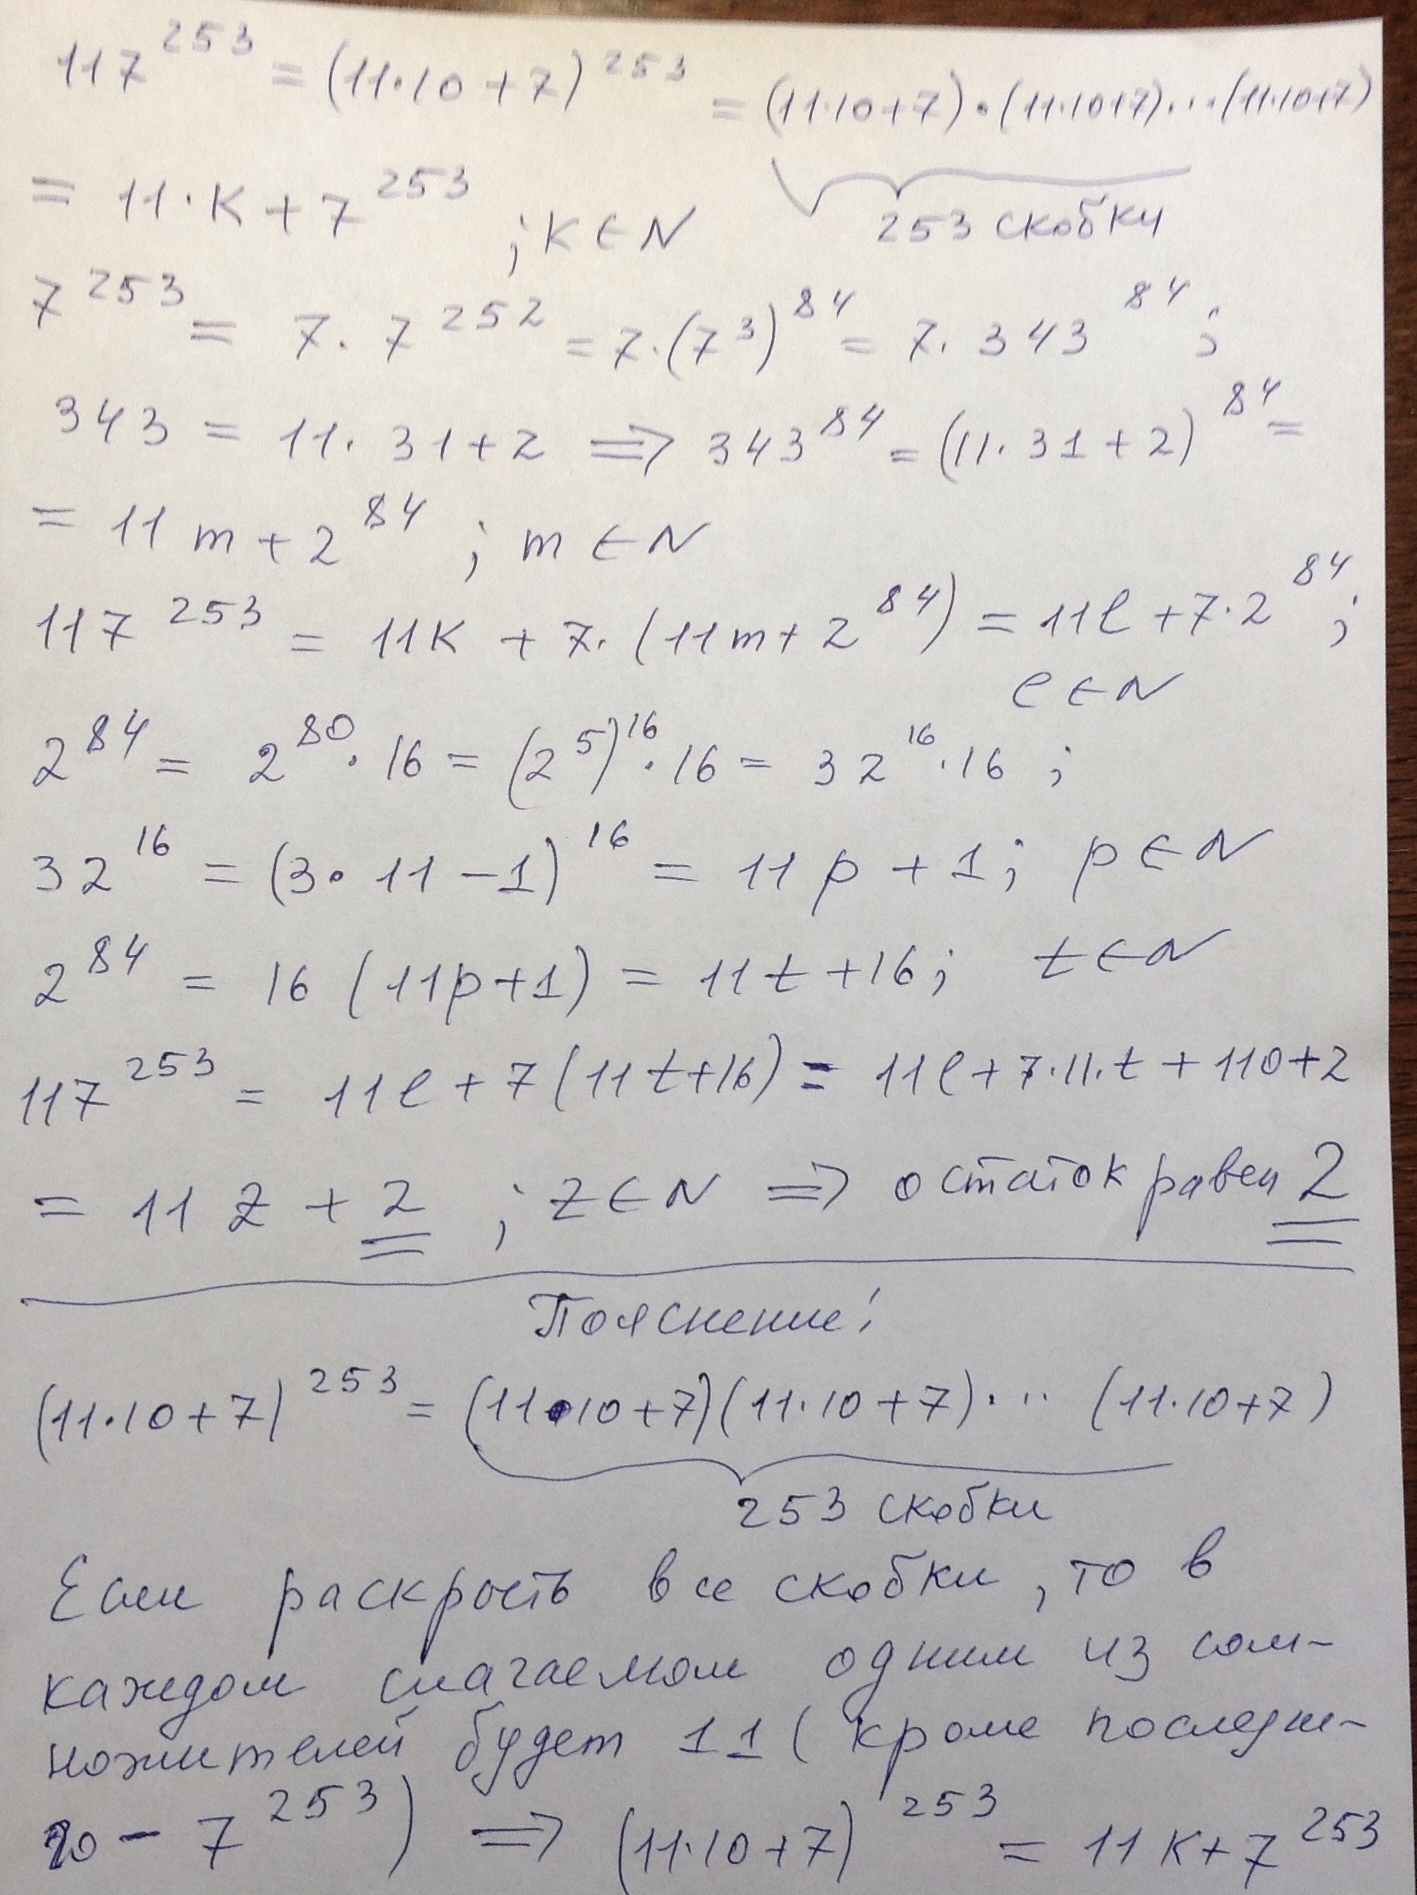 117^253 = (11·10+7)^253 = (11·10+7)·(11·10+7)...(11·10+7)
= 11·K+7^253 ; K ∈ N 253 скобки
7^253 = 7·7^252 = 7·(7^3)^84 = 7·343^84 ;
343 = 11·31+2 => 343^84 = (11·31+2)^84 =
= 11m+2^84 ; m ∈ N
117^253 = 11K + 7·(11m+2^84) = 11ℓ+7·2^84 ;
ℓ ∈ N
2^84 = 2^80·16 = (2^5)^16·16 = 32^16·16 ;
32^16 = (3·11-1)^16 = 11p+1 ; p ∈ N
2^84 = 16(11p+1) = 11t+16 ; t ∈ N
117^253 = 11ℓ+7(11t+16) = 11ℓ+7·11·t+110+2
= 11z+2 ; z ∈ N => остаток равен 2
Пояснение:
(11·10+7)^253 = (11·10+7)(11·10+7)·... (11·10+7)
253 скобки
Если раскрыть все скобки, то в
каждом слагаемом одним из сом-
ножителей будет 11 (кроме последне-
го - 7^253) => (11·10+7)^253 = 11K+7^253